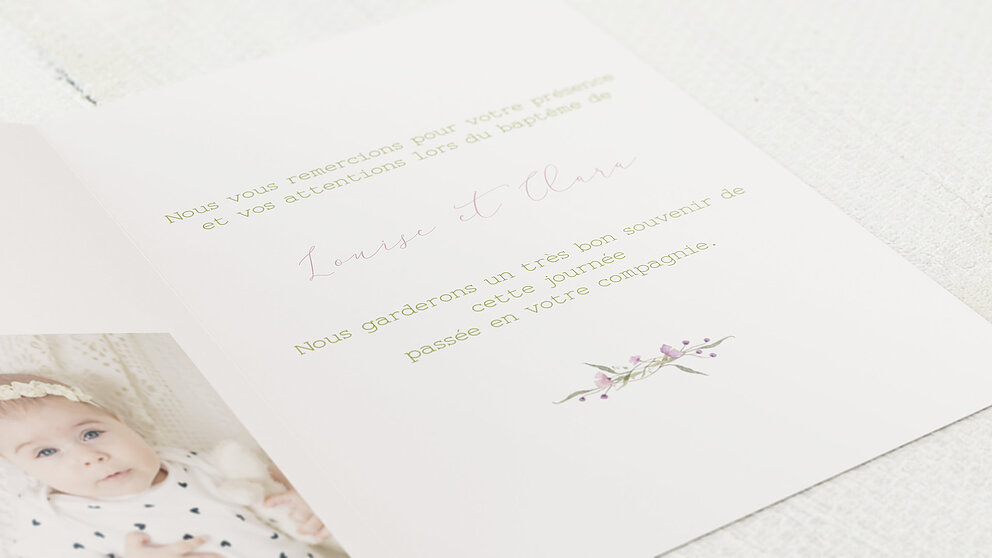 Nous vous remercions pour votre présence
et vos attentions lors du baptême de
Louise et Clara
Nous garderons un très bon souvenir de
cette journée
passée en votre compagnie.